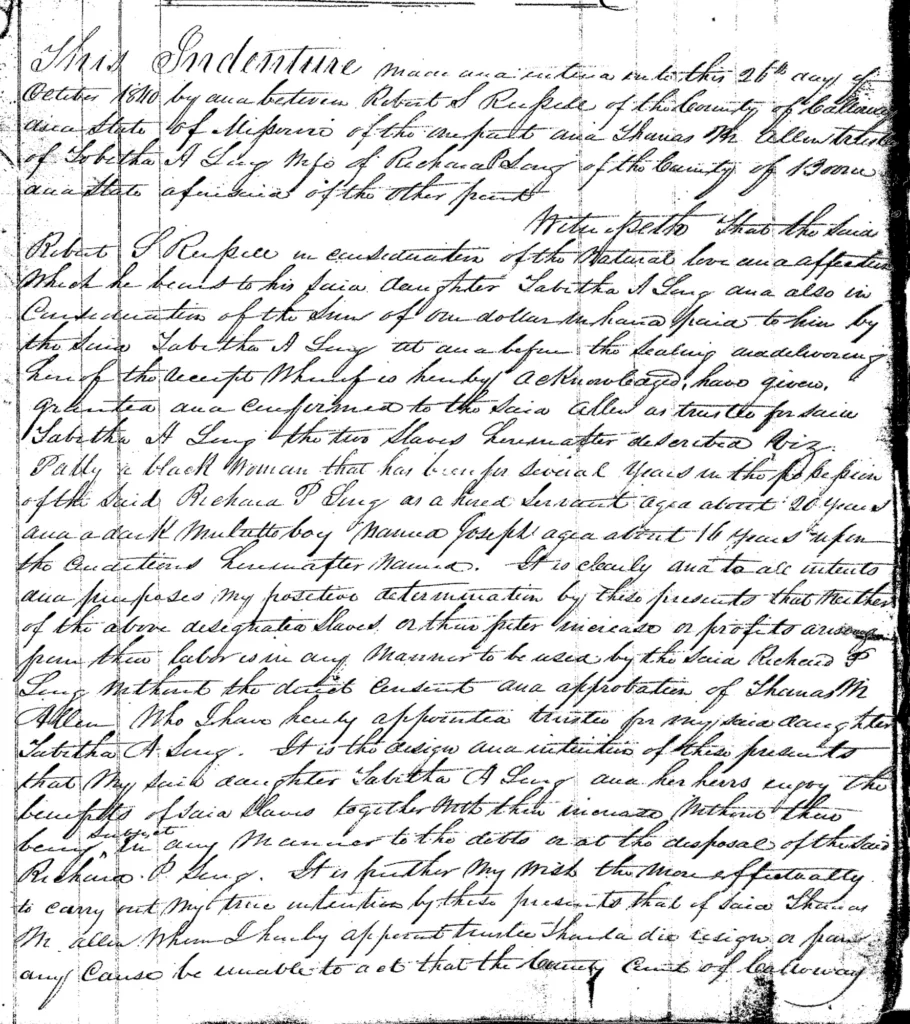 This Indenture made and entered into this 26th day of
October 1840 by and between Robert S Russell of the County of Callaway
and State of Missouri of the one part and Thomas M Allen trustee
of Tabitha A Ling Wife of Richard P Ling of the County of Boone
and State aforesaid of the other part
Witnesseth That the said
Robert S Russell in consideration of the Natural love and affection
Which he bears to his said daughter Tabitha A Ling and also in
Consideration of the Sum of one dollar in hand paid to him by
the Said Tabitha A Ling at and before the sealing and delivering
hereof the receipt Whereof is hereby acknowledged, have given,
granted and confirmed to the said Allen as trustee for said
Tabitha A Ling the two Slaves hereinafter described Viz.
Patsy a black Woman that has been for several Years in the possession
of the Said Richard P Ling as a hired servant aged about 20 Years
and a dark Mulatto boy Named Joseph aged about 16 Years upon
the conditions hereinafter Named. It is clearly and to all intents
and purposes my positive determination by these presents that Neither
of the above designated Slaves or their future increase or profits arising
from their labor is in any Manner to be used by the Said Richard P
Ling Without the direct Consent and approbation of Thomas M
Allen Who I have hereby appointed trustee for my said daughter
Tabitha A Ling. It is the design and intention of these presents
that My said daughter Tabitha A Ling and her heirs enjoy the
benefits of Said Slaves together With their increase Without their
being subject in any Manner to the debts or at the disposal of the Said
Richard P. Ling. It is further My Wish the More effectually
to carry out My true intention by these presents that if Said Thomas
M. Allen Whom I hereby appoint trustee Should die resign or from
any Cause be unable to act that the County Court of Calloway